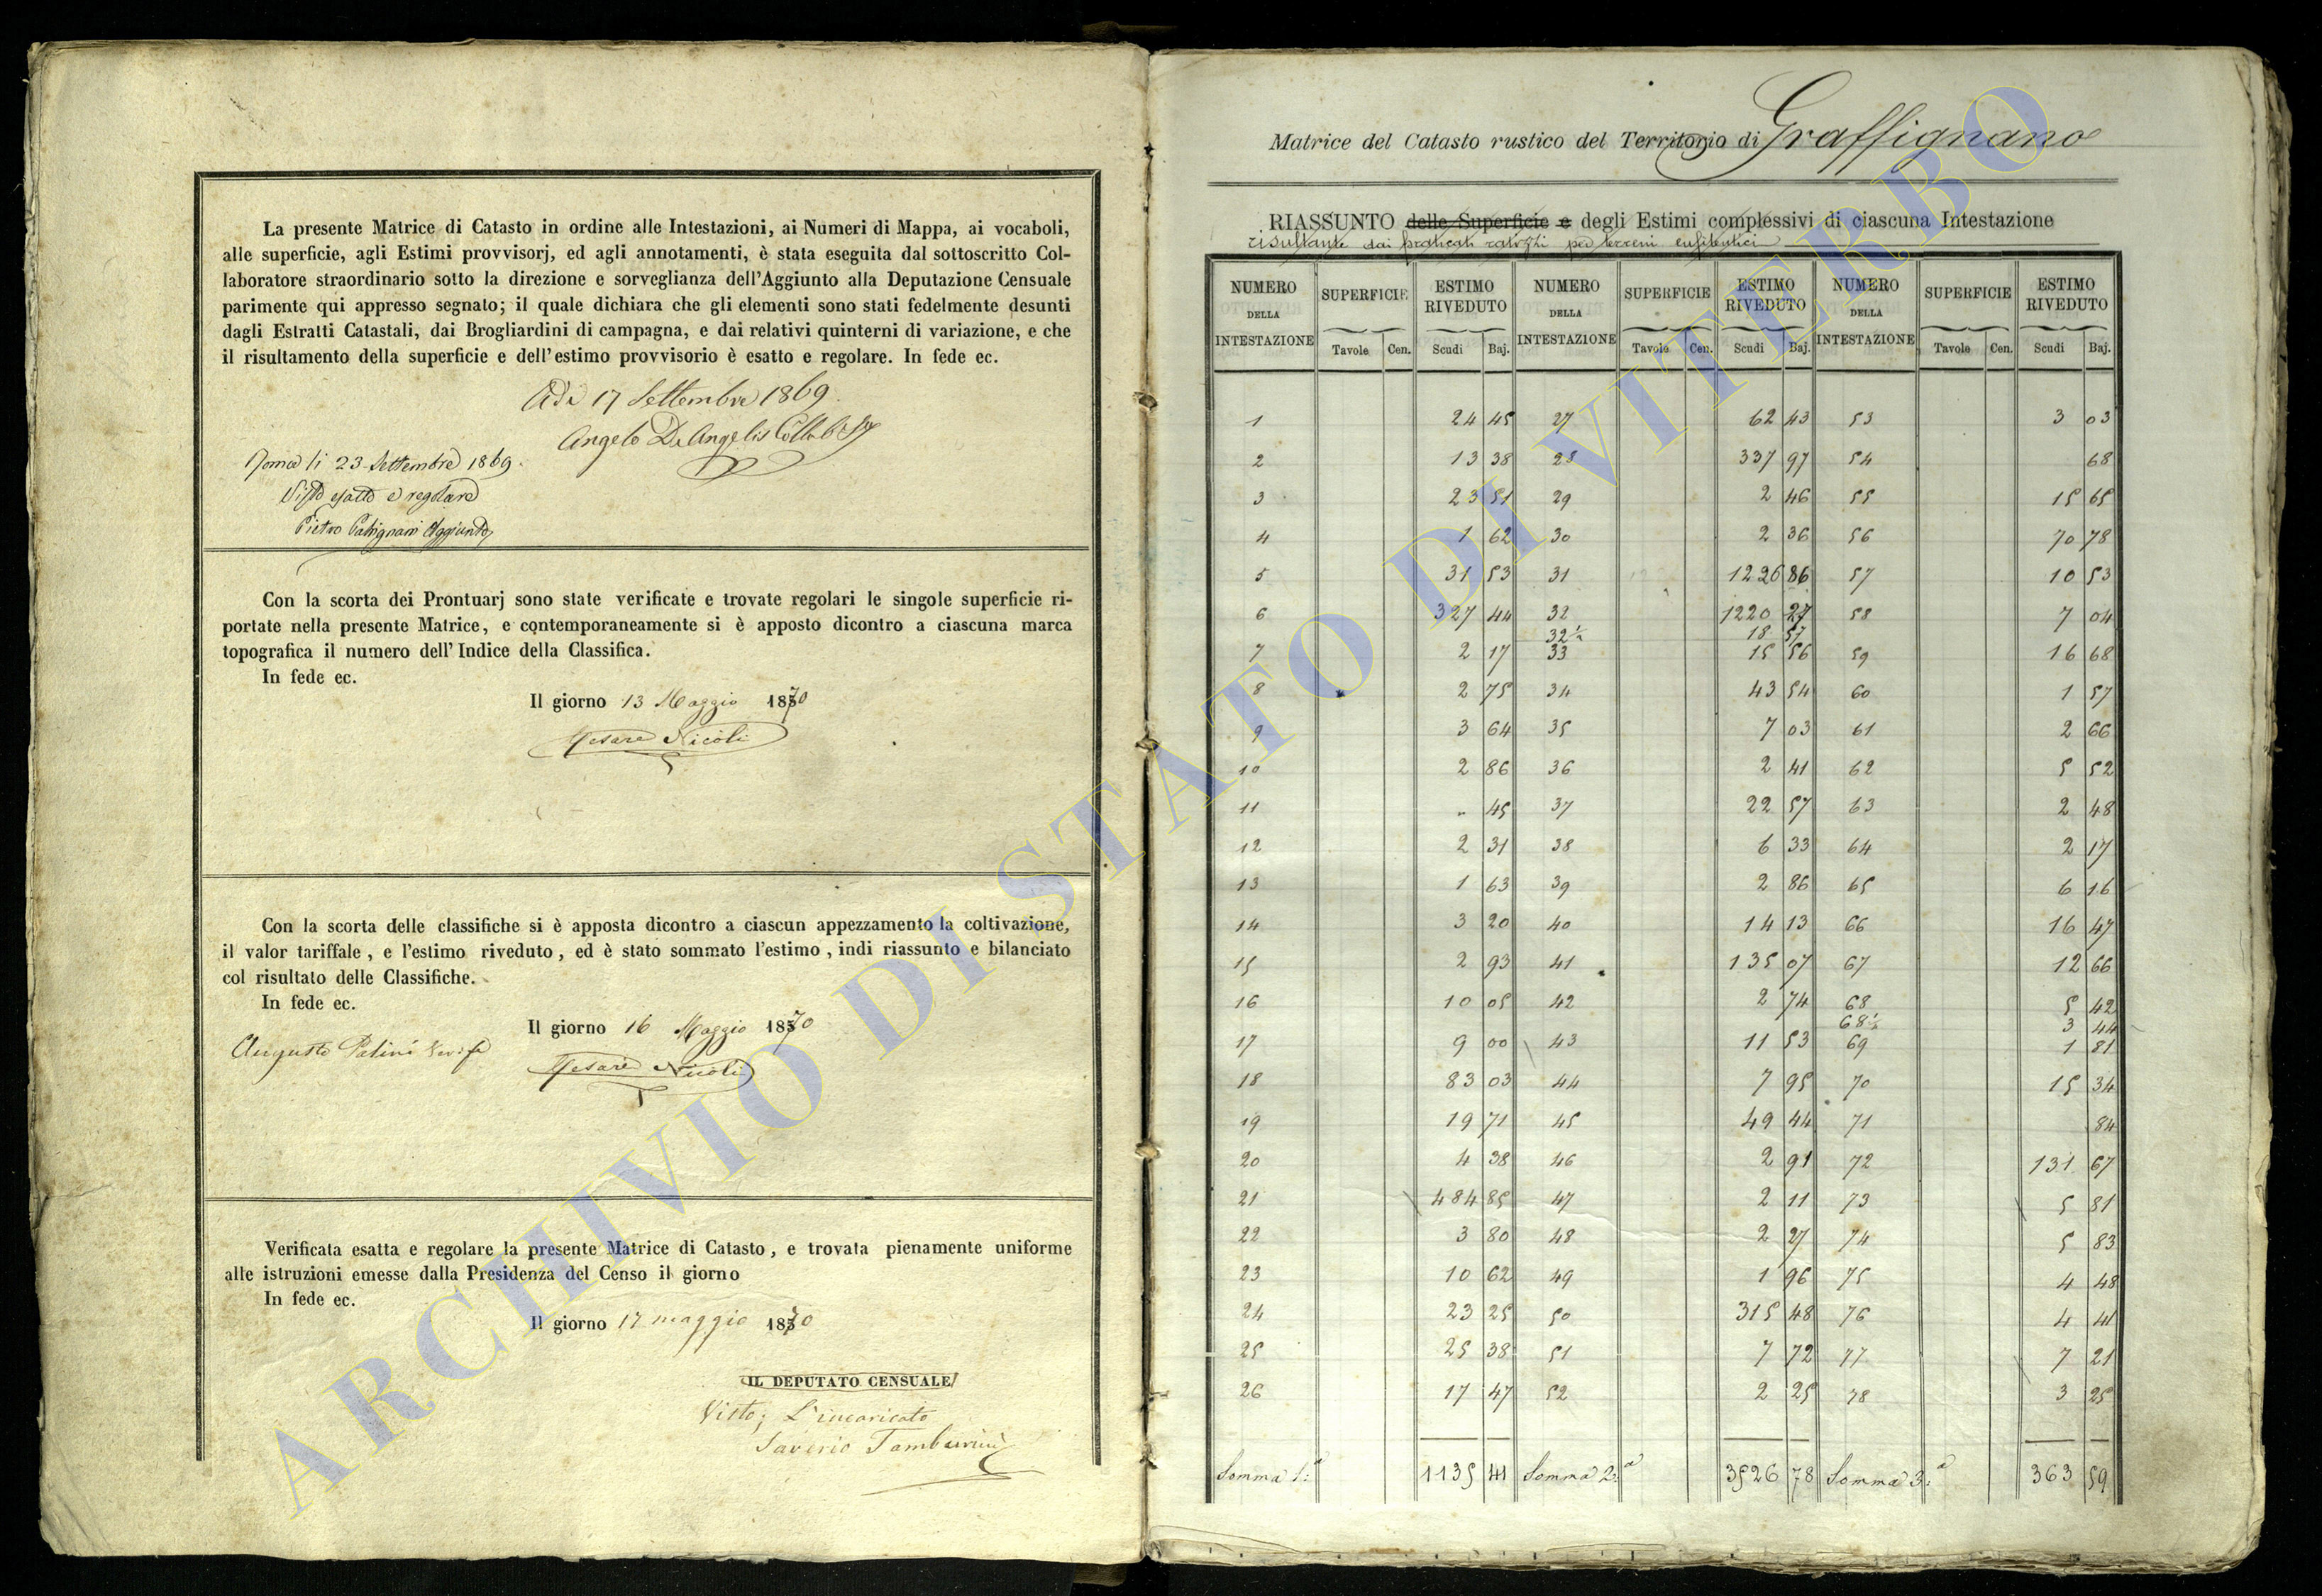 La presente Matrice di Catasto in ordine alle Intestazioni, ai Numeri di Mappa, ai vocaboli,
alle superficie, agli Estimi provvisorj, ed agli annotamenti, è stata eseguita dal sottoscritto Col-
laboratore straordinario sotto la direzione e sorveglianza dell'Aggiunto alla Deputazione Censuale
parimente qui appresso segnato; il quale dichiara che gli elementi sono stati fedelmente desunti
dagli Estratti Catastali, dai Brogliardini di campagna, e dai relativi quinterni di variazione, e che
il risultamento della superficie e dell'estimo provvisorio è esatto e regolare. In fede ec.
Adi 17 Settembre 1869.
Angelo De Angelis
Roma li 23 Settembre 1869.
Visto esatto e regolare
Pietro Aggiunto
Con la scorta dei Prontuarj sono state verificate e trovate regolari le singole superficie ri-
portate nella presente Matrice, e contemporaneamente si è apposto dicontro a ciascuna marca
topografica il numero dell'Indice della Classifica.
In fede ec.
Il giorno 13 Maggio 1870
Cesare Nicoli
Con la scorta delle classifiche si è apposta dicontro a ciascun appezzamento la coltivazione,
il valor tariffale, e l'estimo riveduto, ed è stato sommato l'estimo, indi riassunto e bilanciato
col risultato delle Classifiche.
In fede ec.
Il giorno 16 Maggio 1870
Augusto Patini
Cesare Nicoli
Verificata esatta e regolare la presente Matrice di Catasto, e trovata pienamente uniforme
alle istruzioni emesse dalla Presidenza del Censo il giorno
In fede ec.
Il giorno 17 maggio 1870
IL DEPUTATO CENSUALE
Visto; L'incaricato
Saverio Tamburini
Matrice del Catasto rustico del Territorio di Graffignano
RIASSUNTO delle Superficie e degli Estimi complessivi di ciascuna Intestazione
risultante dai praticati per terreni enfiteutici
NUMERO DELLA INTESTAZIONE SUPERFICIE ESTIMO RIVEDUTO NUMERO DELLA INTESTAZIONE SUPERFICIE ESTIMO RIVEDUTO NUMERO DELLA INTESTAZIONE SUPERFICIE ESTIMO RIVEDUTO
Tavole Cen. Scudi Baj. Tavole Cen. Scudi Baj. Tavole Cen. Scudi Baj.
1 24 45 27 62 43 53 3 03
2 13 38 28 337 97 54 68
3 23 51 29 2 46 55 15 65
4 1 62 30 2 36 56 70 78
5 31 53 31 1226 86 57 10 53
6 327 44 32 1220 27 58 7 04
32½ 18 57
7 2 17 33 15 56 59 16 68
8 2 75 34 43 54 60 1 57
9 3 64 35 7 03 61 2 66
10 2 86 36 2 41 62 5 52
11 " 45 37 22 57 63 2 48
12 2 31 38 6 33 64 2 17
13 1 63 39 2 86 65 6 16
14 3 20 40 14 13 66 16 47
15 2 93 41 135 07 67 12 66
16 10 05 42 2 74 68 5 42
68½ 3 44
17 9 00 43 11 53 69 1 81
18 83 03 44 7 95 70 15 34
19 19 71 45 49 44 71 84
20 4 38 46 2 91 72 131 67
21 484 85 47 2 11 73 5 81
22 3 80 48 2 27 74 5 83
23 10 62 49 1 96 75 4 48
24 23 25 50 315 48 76 4 41
25 25 38 51 7 72 77 7 21
26 17 47 52 2 25 78 3 25
Somma 1:a 1135 41 Somma 2:a 3526 78 Somma 3:a 363 59
ARCHIVIO DI STATO DI VITERBO